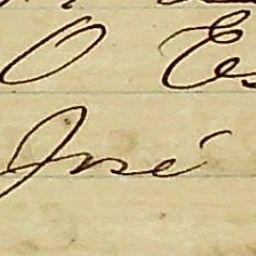 O Es
José